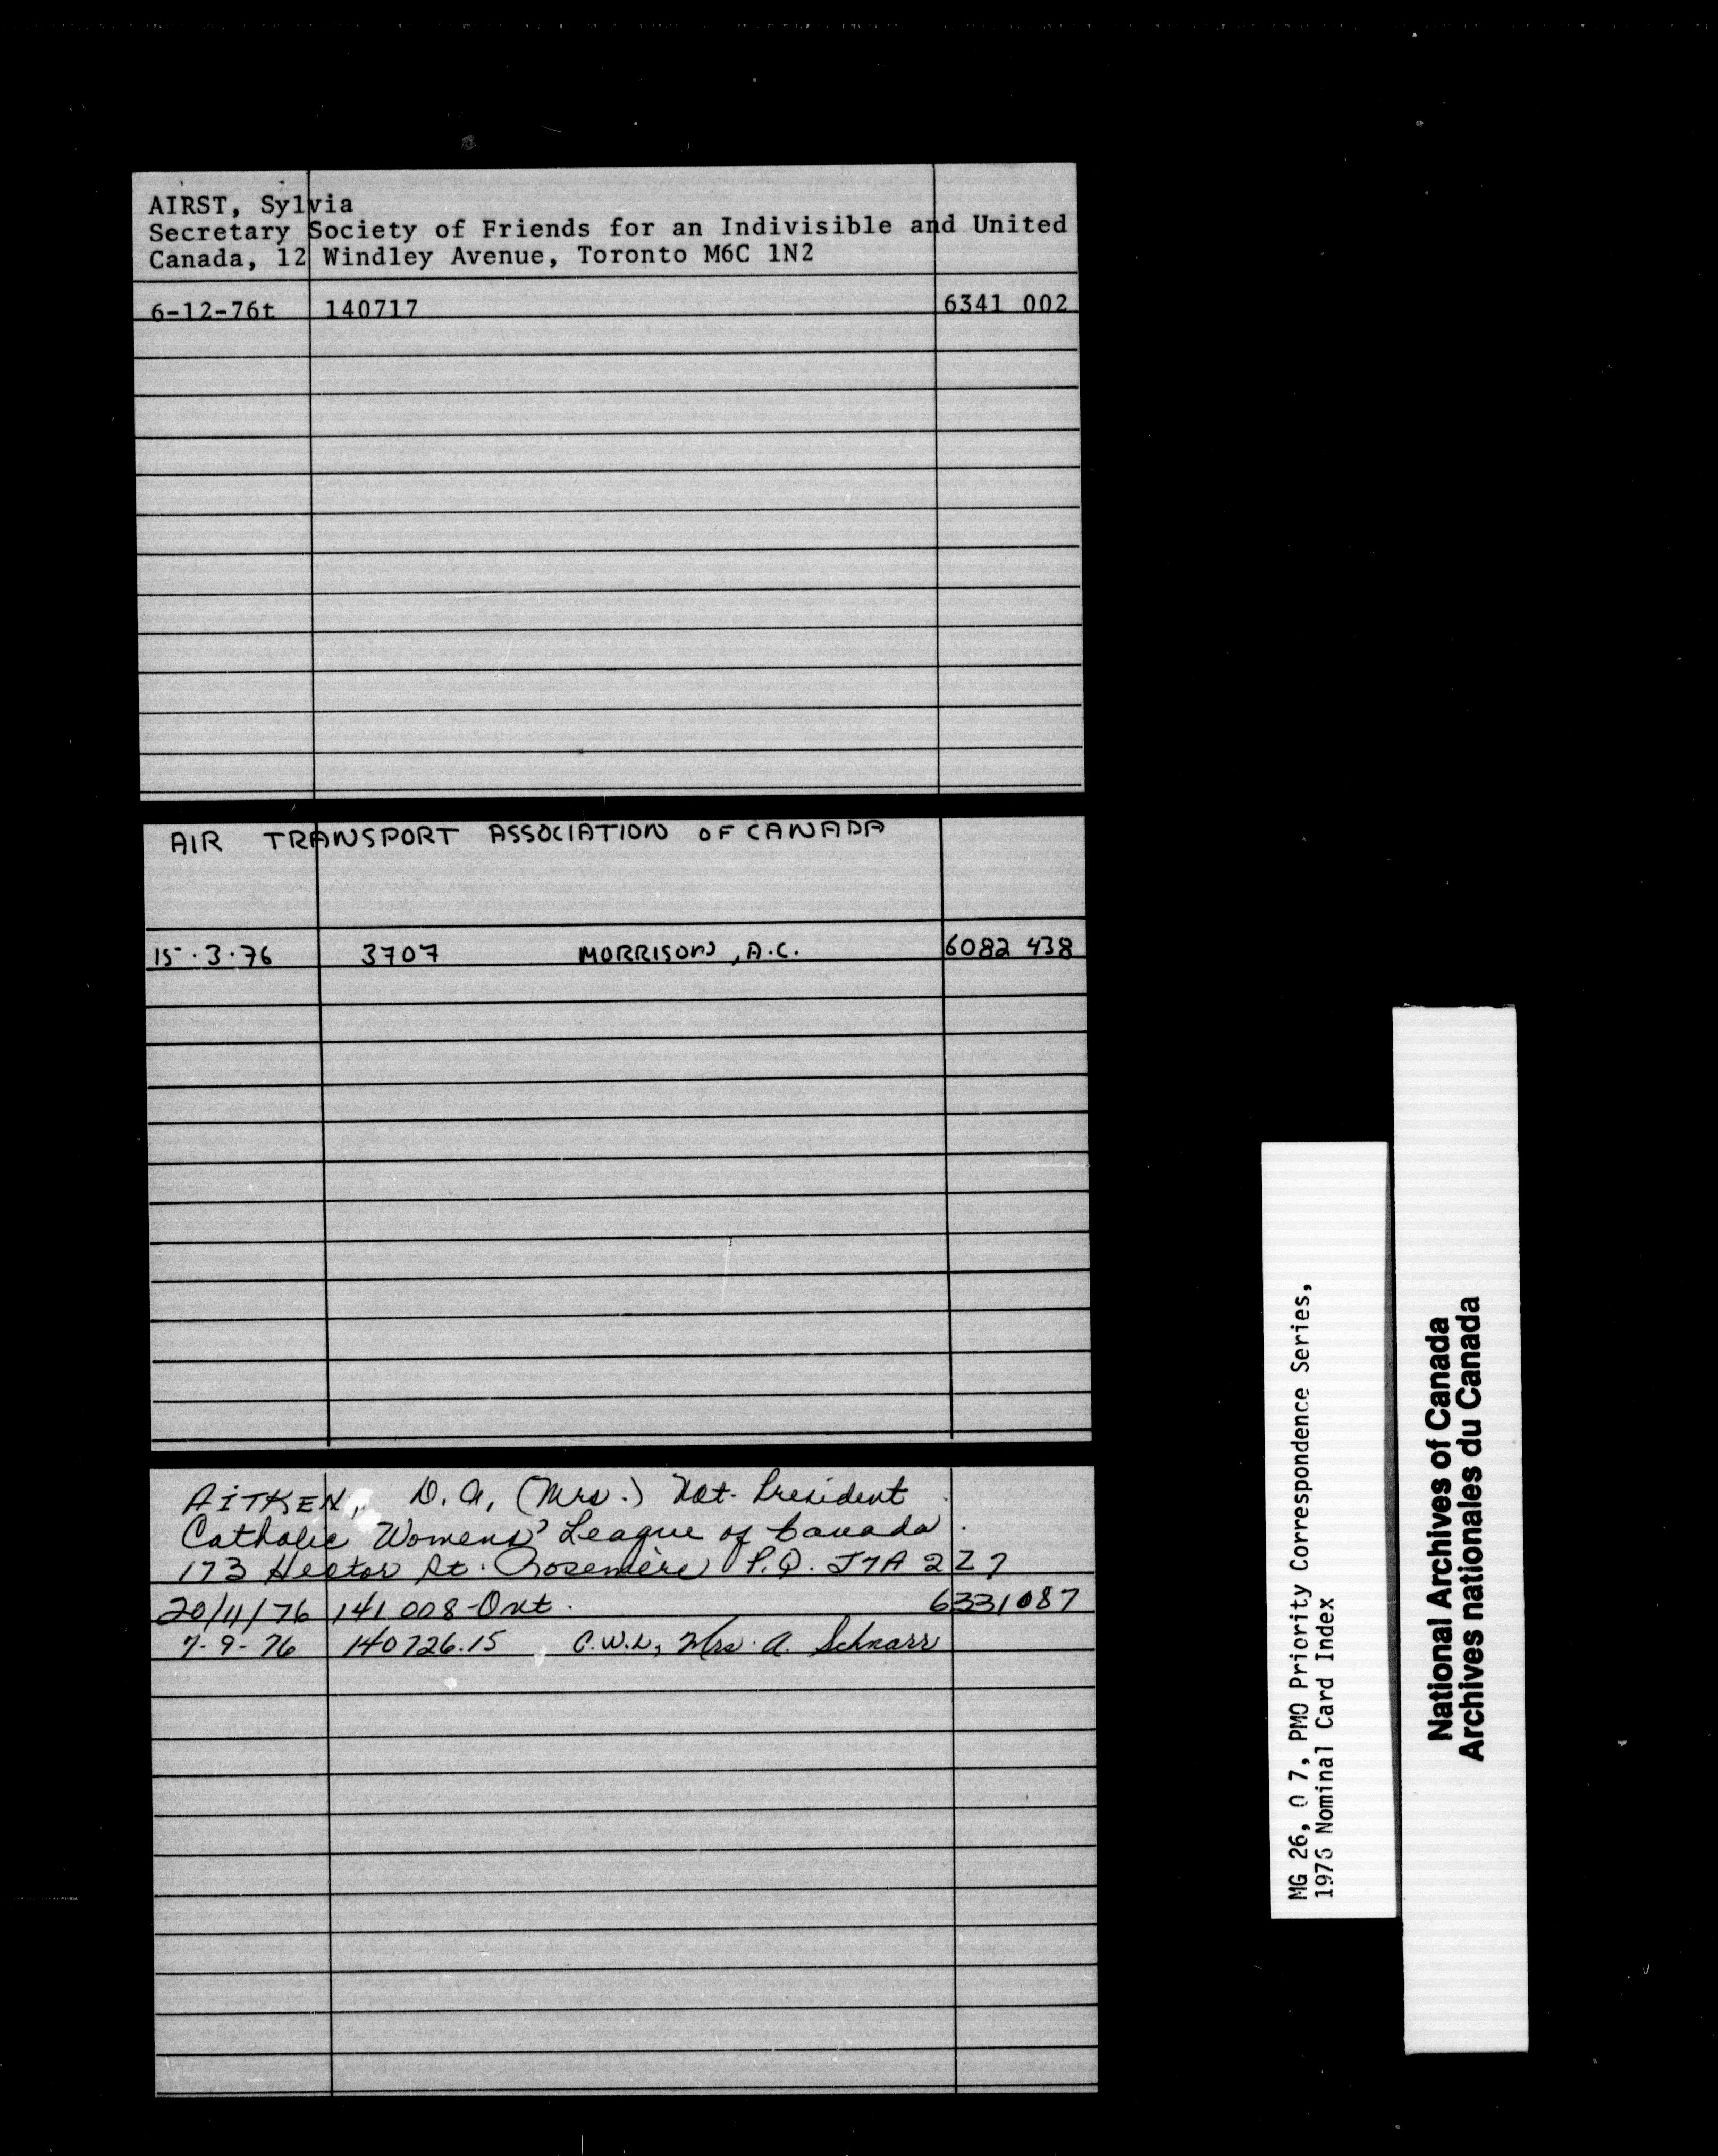 AIRST, Sylvia
Secretary Society of Friends for an Indivisible and United
Canada, 12 Windley Avenue, Toronto M6C 1N2
6-12-76t 140717 6341 002
AIR TRANSPORT ASSOCIATION OF CANADA
15.3.76 3707 MORRISON, A.C. 6082 438
AITKEN, D.A, (Mrs.) Nat. President
Catholic Womens' League of Canada.
173 Hector St. Rosemère P.Q. J7A 2Z7
20/11/76 141 008-Ont. 6331087
7-9-76 140726.15 C.W.L, Mrs. A. Schnarr
MG 26, O 7, PMO Priority Correspondence Series,
1976 Nominal Card Index
National Archives of Canada
Archives nationales du Canada